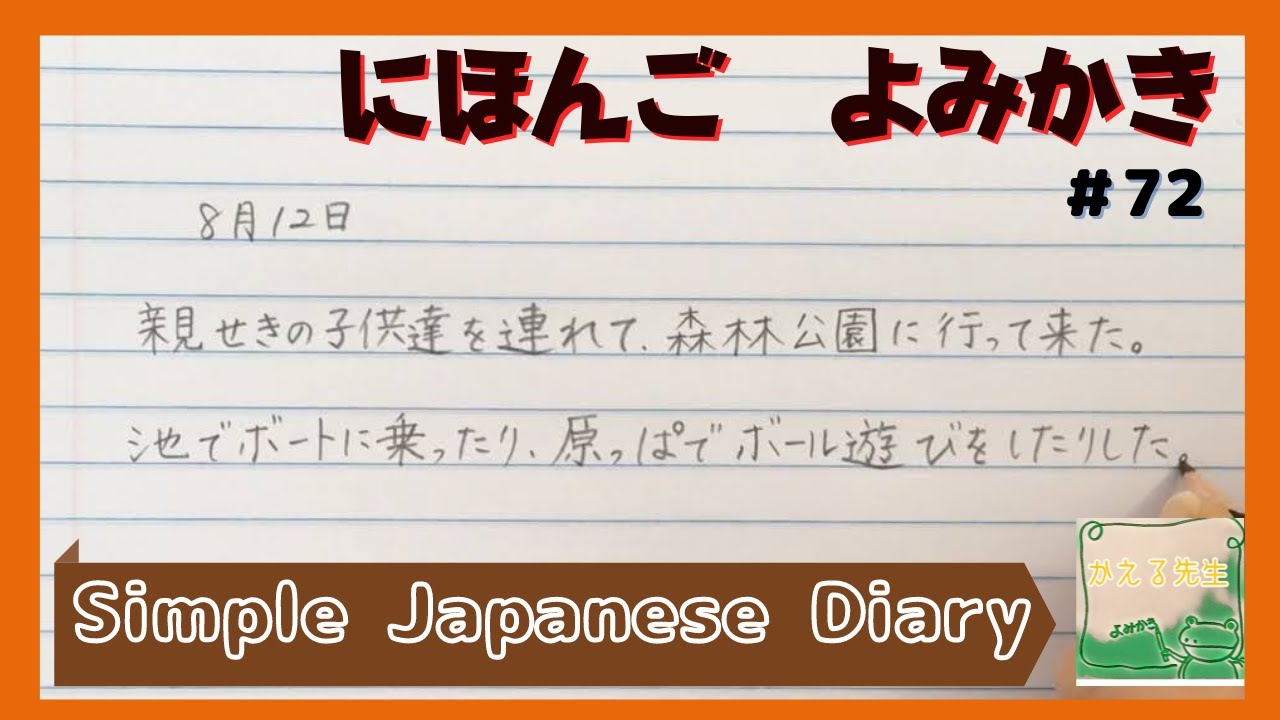 にほんご　よみかき
#72
8月12日
親せきの子供達を連れて、森林公園に行って来た。
池でボートに乗ったり、原っぱでボール遊びをしたりした。
Simple Japanese Diary
かえる先生
よみかき